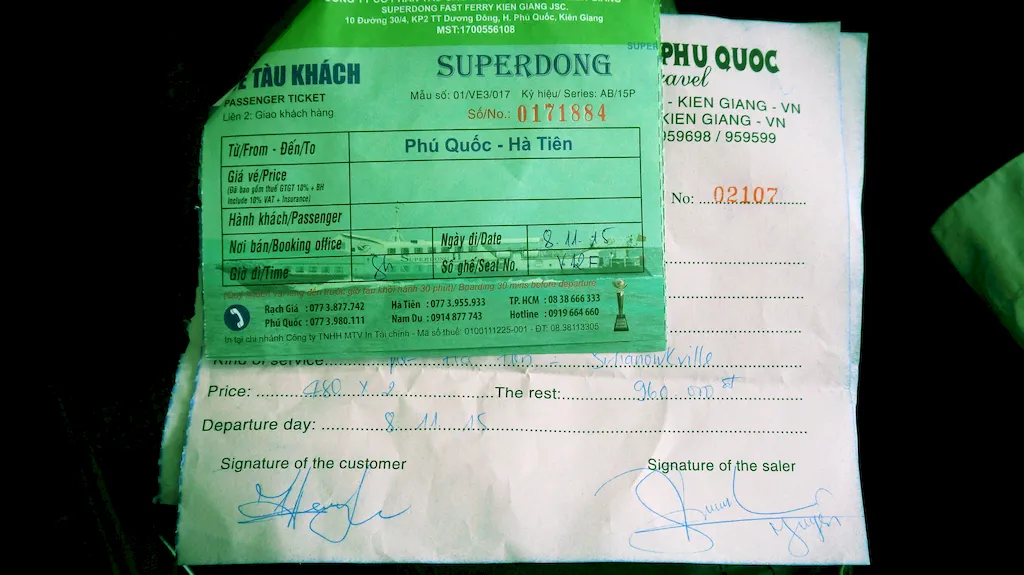 SUPERDONG FAST FERRY KIEN GIANG JSC.
10 Đường 30/4, KP2 TT Dương Đông, H. Phú Quốc, Kiên Giang
MST:1700556108
TÀU KHÁCH
PASSENGER TICKET
Liên 2: Giao khách hàng
SUPERDONG
Mẫu số: 01/VE3/017 Ký hiệu/ Series: AB/15P
Số/No.: 0171884
Từ/From - Đến/To Phú Quốc - Hà Tiên
Giá vé/Price
(Đã bao gồm thuế GTGT 10% + BH
Include 10% VAT + Insurance)
Hành khách/Passenger
Nơi bán/Booking office Ngày đi/Date 8.11.15
Giờ đi/Time 8h Số ghế/Seat No.
Boarding 30 mins before departure
Rạch Giá : 077 3.877.742 Hà Tiên : 077 3.955.933 TP. HCM : 08 38 666 333
Phú Quốc : 077 3.980.111 Nam Du : 0914 877 743 Hotline : 0919 664 660
In tại chi nhánh Công ty TNHH MTV In Tài chính - Mã số thuế: 0100111225-001 - ĐT: 08.38113305
SUPER
PHU QUOC
ravel
- KIEN GIANG - VN
KIEN GIANG - VN
959698 / 959599
No: 02107
Kind of service: Sihanoukville
Price: 480 x 2 The rest: 960.000đ
Departure day: 8 11 15
Signature of the customer Signature of the saler